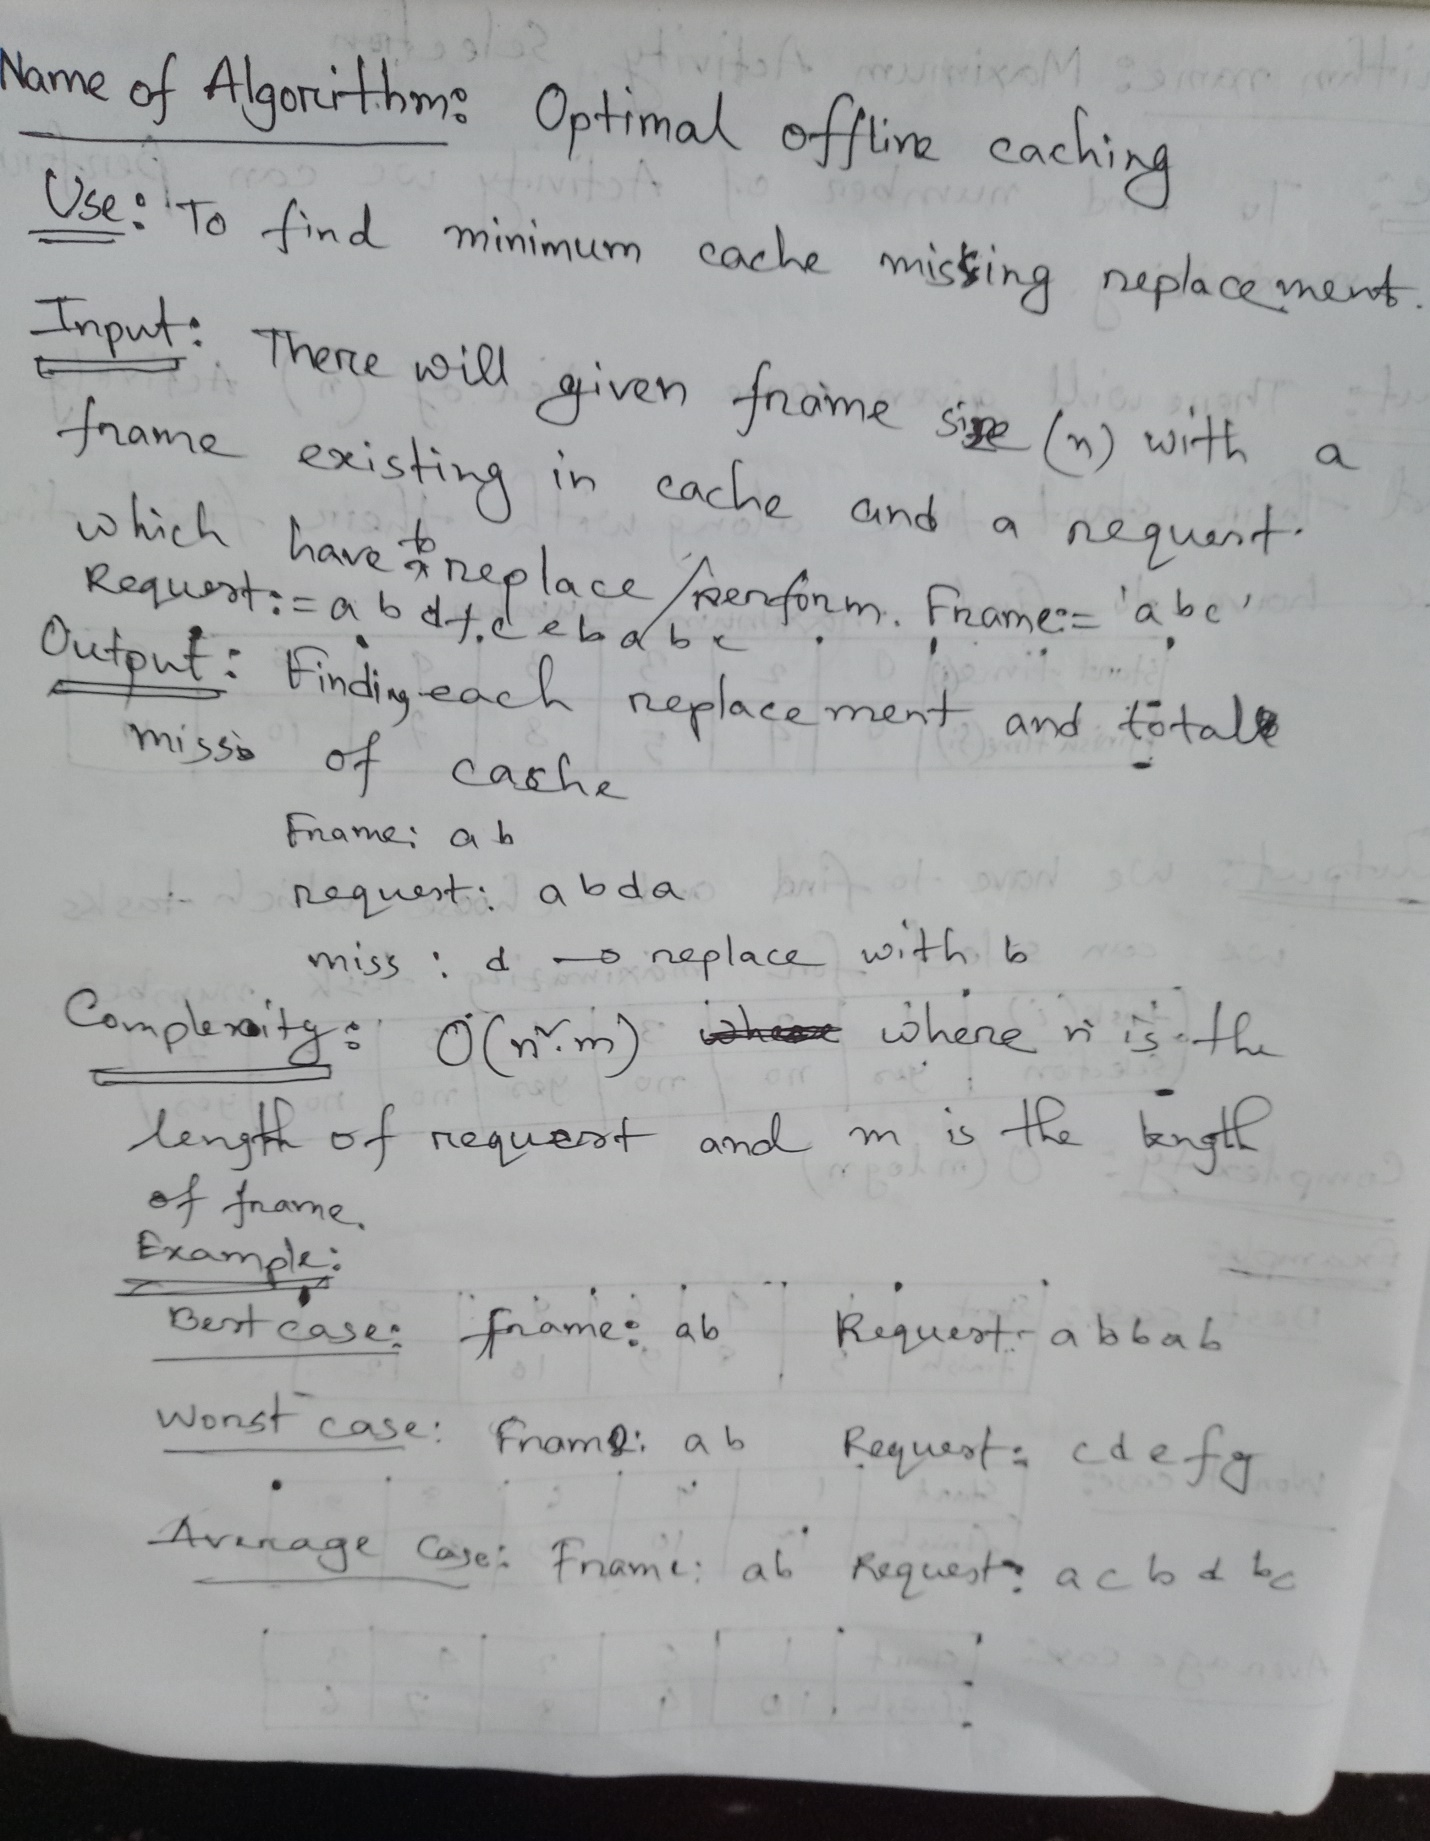 Name of Algorithm: Optimal offline caching
Use: To find minimum cache missing replacement.
Input: There will given frame size (n) with a
frame existing in cache and a request.
which have to replace/perform. Frame:= 'abc'
Request:= a b d f c e b a b c
Output: Finding each replacement and total
miss of cache
Frame: a b
request: a b d a
miss : d → replace with b
Complexity: O(n².m) where n is the
length of request and m is the length
of frame.
Example:
Best case: frame: ab Request:- a b b a b
Worst case: Frame: a b Request: c d e f g
Average Case: Frame: ab Request: a c b d b c